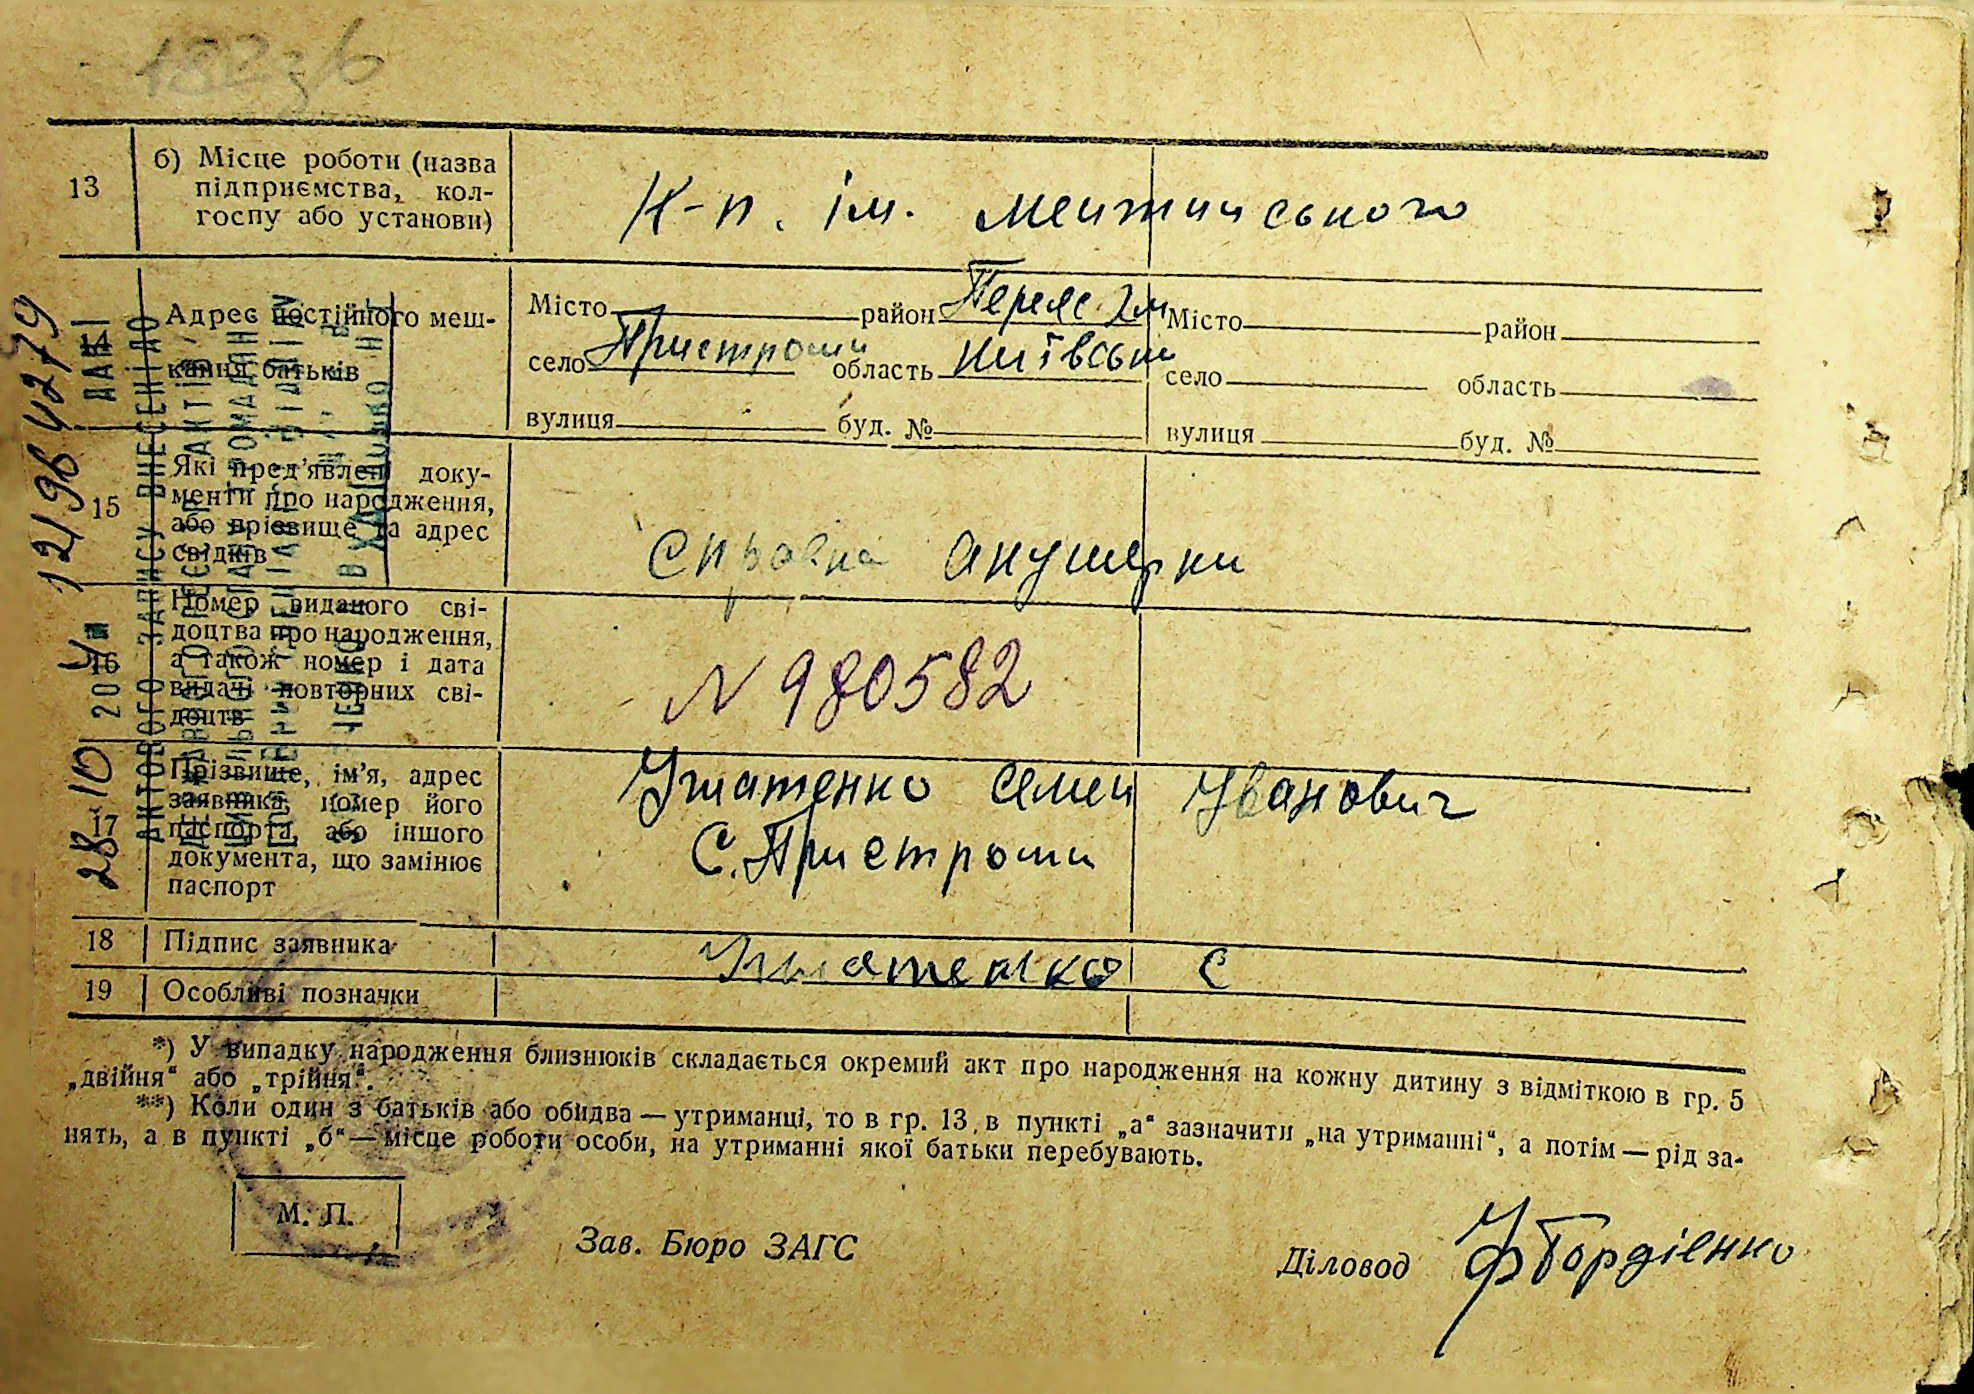 182зб
13
б) Місце роботи (назва
підприємства, кол-
госпу або установи)
К-п. ім.
14
Адрес постійного меш-
кання батьків
Місто район Переяс. Хм
село Пристроми область Київськ
вулиця буд. №
Місто район
село область
вулиця буд. №
15
Які пред'явлені доку-
менти про народження,
або прізвище та адрес
свідків
Справка акушерки
16
Номер виданого сві-
доцтва про народження,
а також номер і дата
видачі повторних сві-
доцтв
N 980582
17
Прізвище, ім'я, адрес
заявника, номер його
паспорта, або іншого
документа, що замінює
паспорт
Ушатенко Семен Іванович
С. Пристроми
18
Підпис заявника
Ушатенко С
19
Особливі позначки
*) У випадку народження близнюків складається окремий акт про народження на кожну дитину з відміткою в гр. 5
„двійня“ або „трійня“.
**) Коли один з батьків або обидва — утриманці, то в гр. 13, в пункті „а“ зазначити „на утриманні“, а потім — рід за-
нять, а в пункті „б“ — місце роботи особи, на утриманні якої батьки перебувають.
М. П.
Зав. Бюро ЗАГС
Діловод Гордієнко
28 10 2014
121984279
ДАНІ
АКТОВОГО ЗАПИСУ ВНЕСЕНІ ДО
ДЕРЖАВНОГО РЕЄСТР АКТІВ
ЦИВІЛЬНОГО СТАНУ ГРОМАДЯН